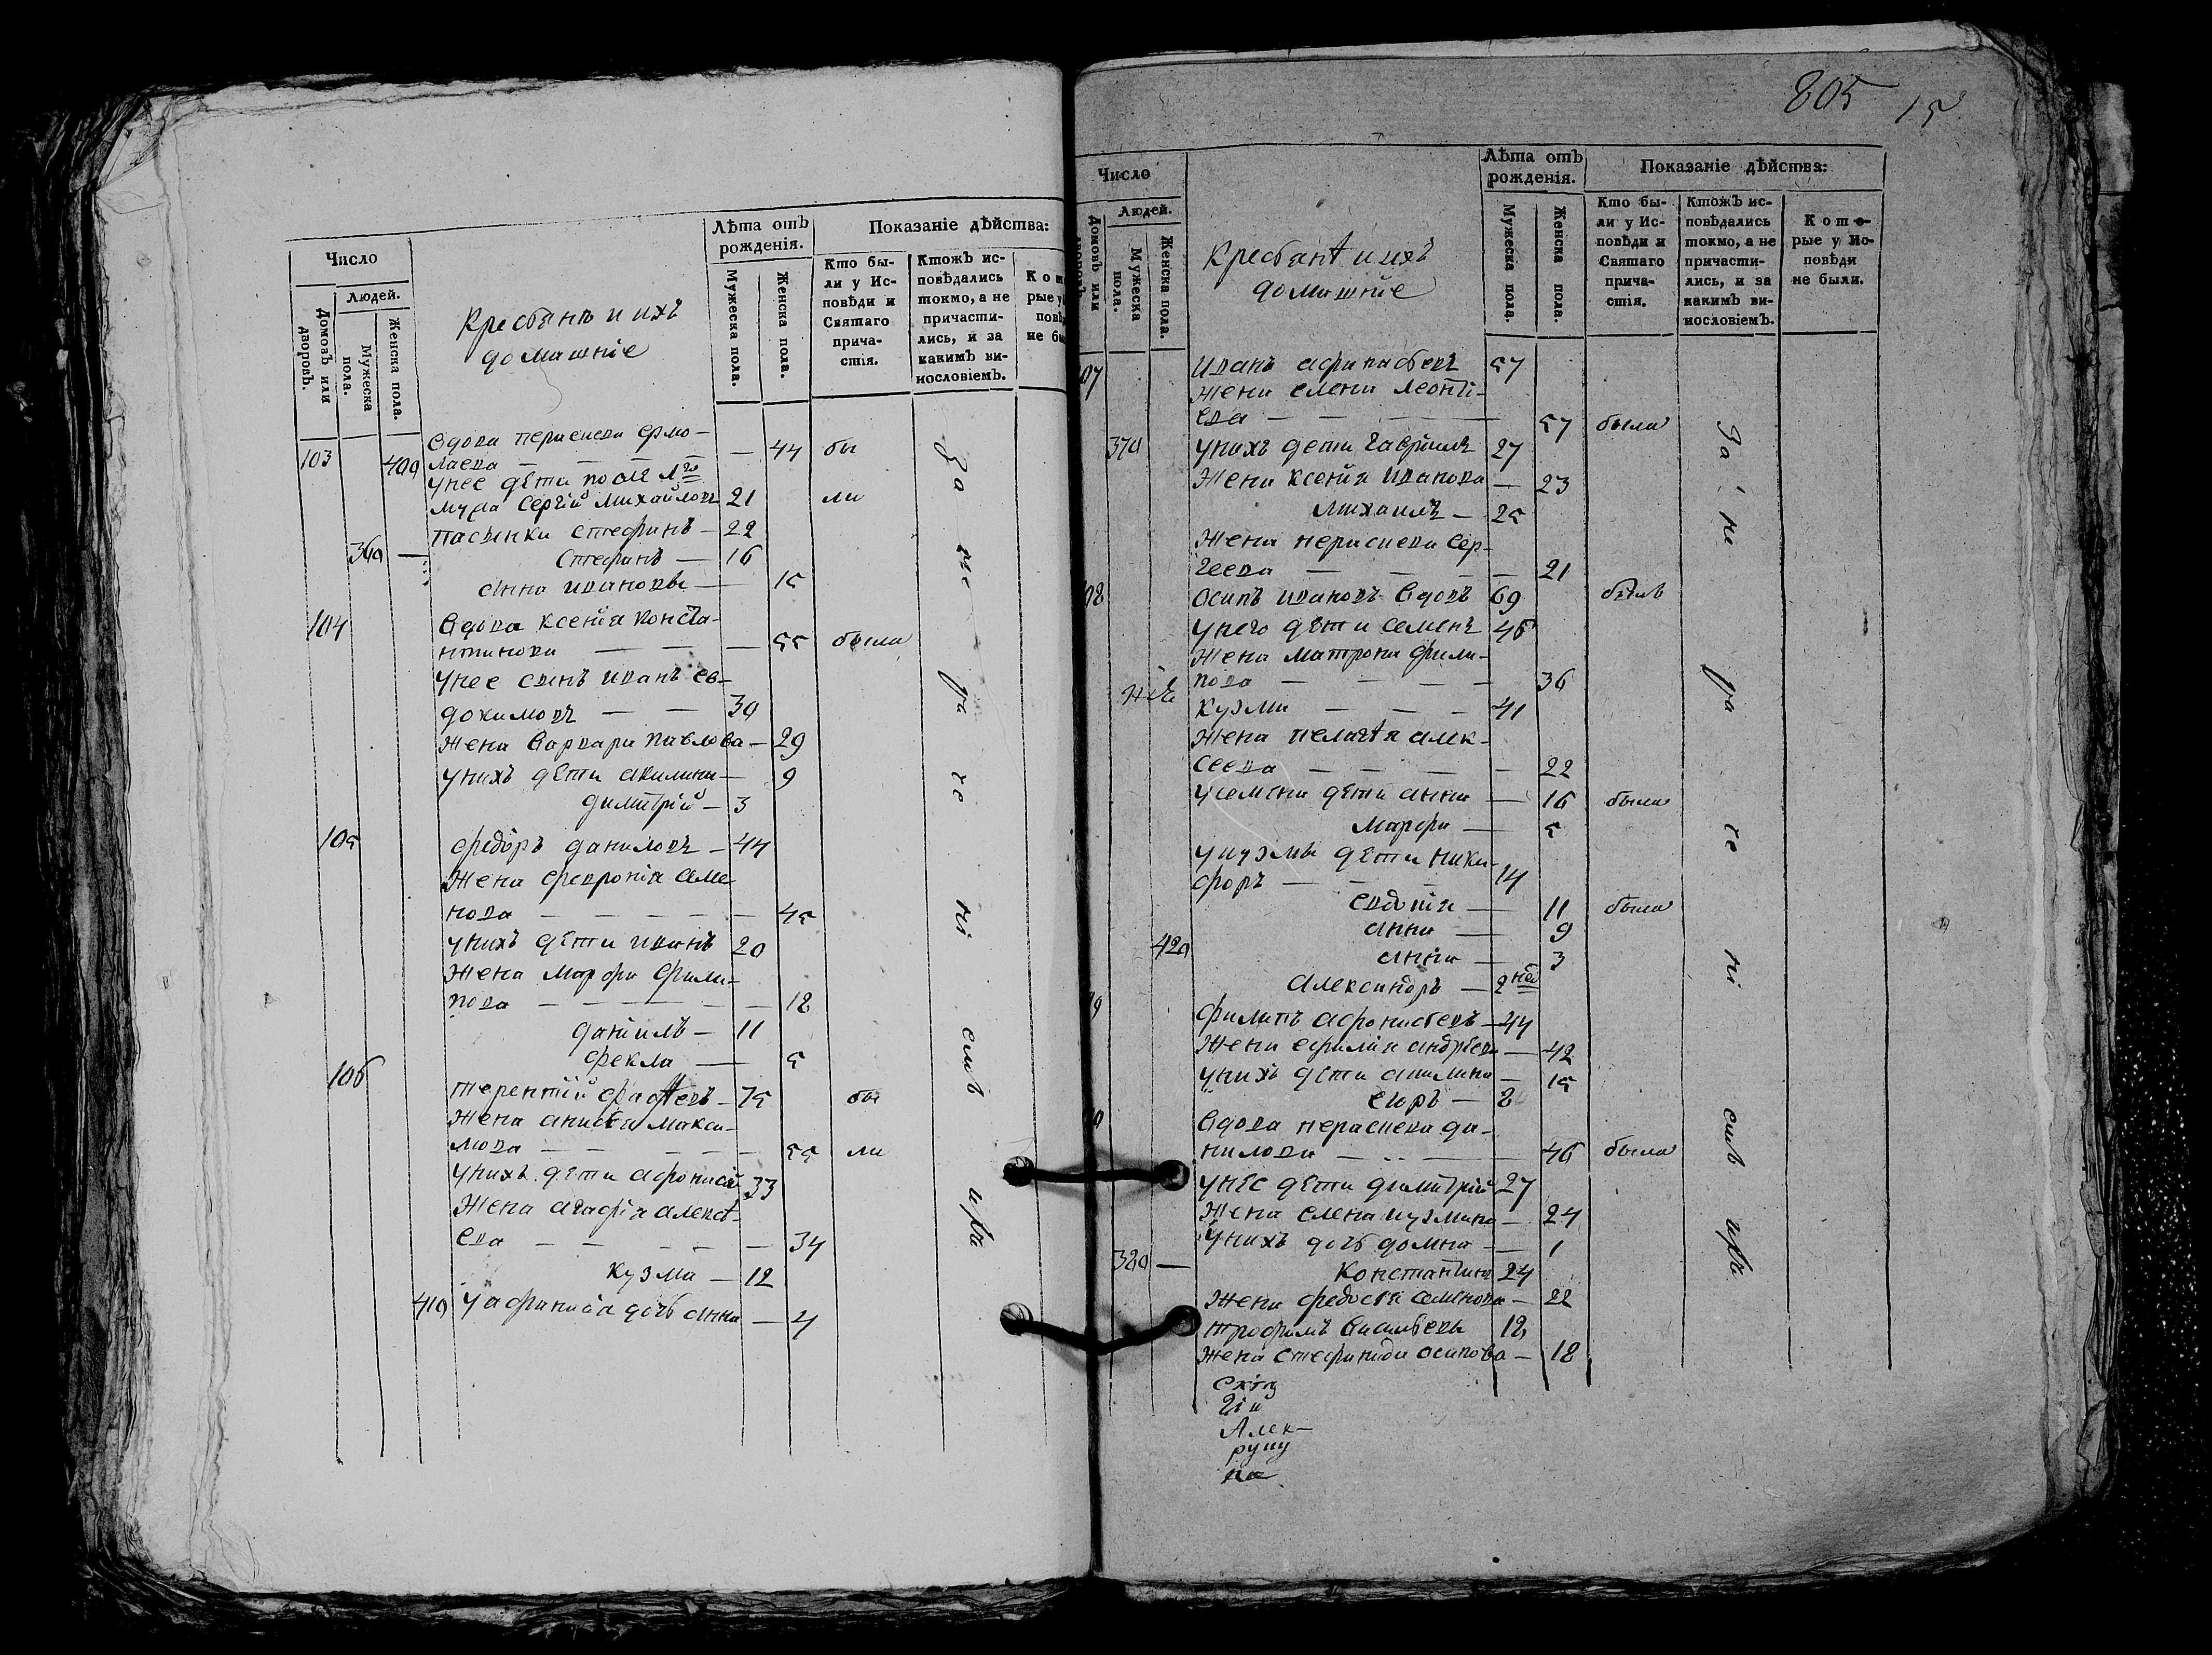 Число
Людей.
Домовъ или дворовъ.
Мужеска пола.
Женска пола.
Крестьянѣ и ихъ
домашніе
Лѣта отъ рожденія.
Мужеска пола.
Женска пола.
Показаніе дѣйства:
Кто бы-
ли у Ис-
повѣди и
Святаго
прича-
стія.
Ктожъ ис-
повѣдались
токмо, а не
причасти-
лись, и за
какимъ ви-
нословіемъ.
103 409
Вдова Параскева Ермо-
лаева — 44 бы
У нее дѣти после 1го
мужа Сергій Михайловъ 21 ли
Пасынки Стефанъ — 22
369 Стефанъ — 16
Анна Ивановы — 15
104 Вдова Ксенія Конста-
нтинова — 55 была
У нее сынъ Иванъ Ев-
докимовъ — 30
Жена Варвара Павлова — 29
У нихъ дѣти Акилина — 9
Димитрій — 3
105 Федоръ Даниловъ — 44
Жена Феврония Семе
нова — 45
У нихъ дѣти Иванъ 20
Жена Марфа Фили-
пова — 18
Даніилъ — 11
Фекла — 5
106 Терентій — 75 бы
Жена Анисія Макси-
мова — 55 ли
У нихъ дѣти Афонасій 33
Жена Агафія Алексѣ-
ева — 34
Кузма — 12
419 У Афанасія дочь Анна — 4
За не ра че ні емъ
805 15
Число
Людей.
Домовъ или
Мужеска пола.
Женска пола.
Крестьянѣ и ихъ
домашніе
Лѣта отъ рожденія.
Мужеска пола.
Женска пола.
Показаніе дѣйства:
Кто бы-
ли у Ис-
повѣди и
Святаго
прича-
стія.
Ктожъ ис-
повѣдались
токмо, а не
причасти-
лись, и за
какимъ ви-
нословіемъ.
Кото-
рые у Ис-
повѣди
не были.
07 Иванъ Афанасьевъ 57
Жена Елена Леонті-
ева — 57 была
370 У нихъ дети Гавріилъ 27
Жена Ксенія Иванова — 23
Михаилъ — 25
Жена Параскева Сер-
геева — 21
08 Осипъ Ивановъ Вдовъ 69 былъ
У него дѣти Семенъ 46
Жена Матрона Фили-
пова — 36
Кузма — 41
Жена Пелагѣя Алек-
сеева — 22
У Семена дѣти Анна — 16 была
Марфа — 5
У Кузмы дѣти Ники-
форъ — 14
Евдокія — 11 была
Анна — 9
429 Анна — 3
Александръ — 2 нед
09 Филипъ Афонасьевъ — 44
Жена Ефимія Андрѣева — 42
У нихъ дѣти Акилина — 15
Егоръ — 8
Вдова Параскева Да-
нилова — 46 была
У нее дѣти Димитрій 27
Жена Елена Кузмина — 24
У нихъ дочь Домна — 1
380 — Константинъ 24
Жена Федосія Семенова — 22
Трофимъ Васильевъ 18
Жена Стефанида Осипова — 18
За не ра че ні емъ
гій
Алек-